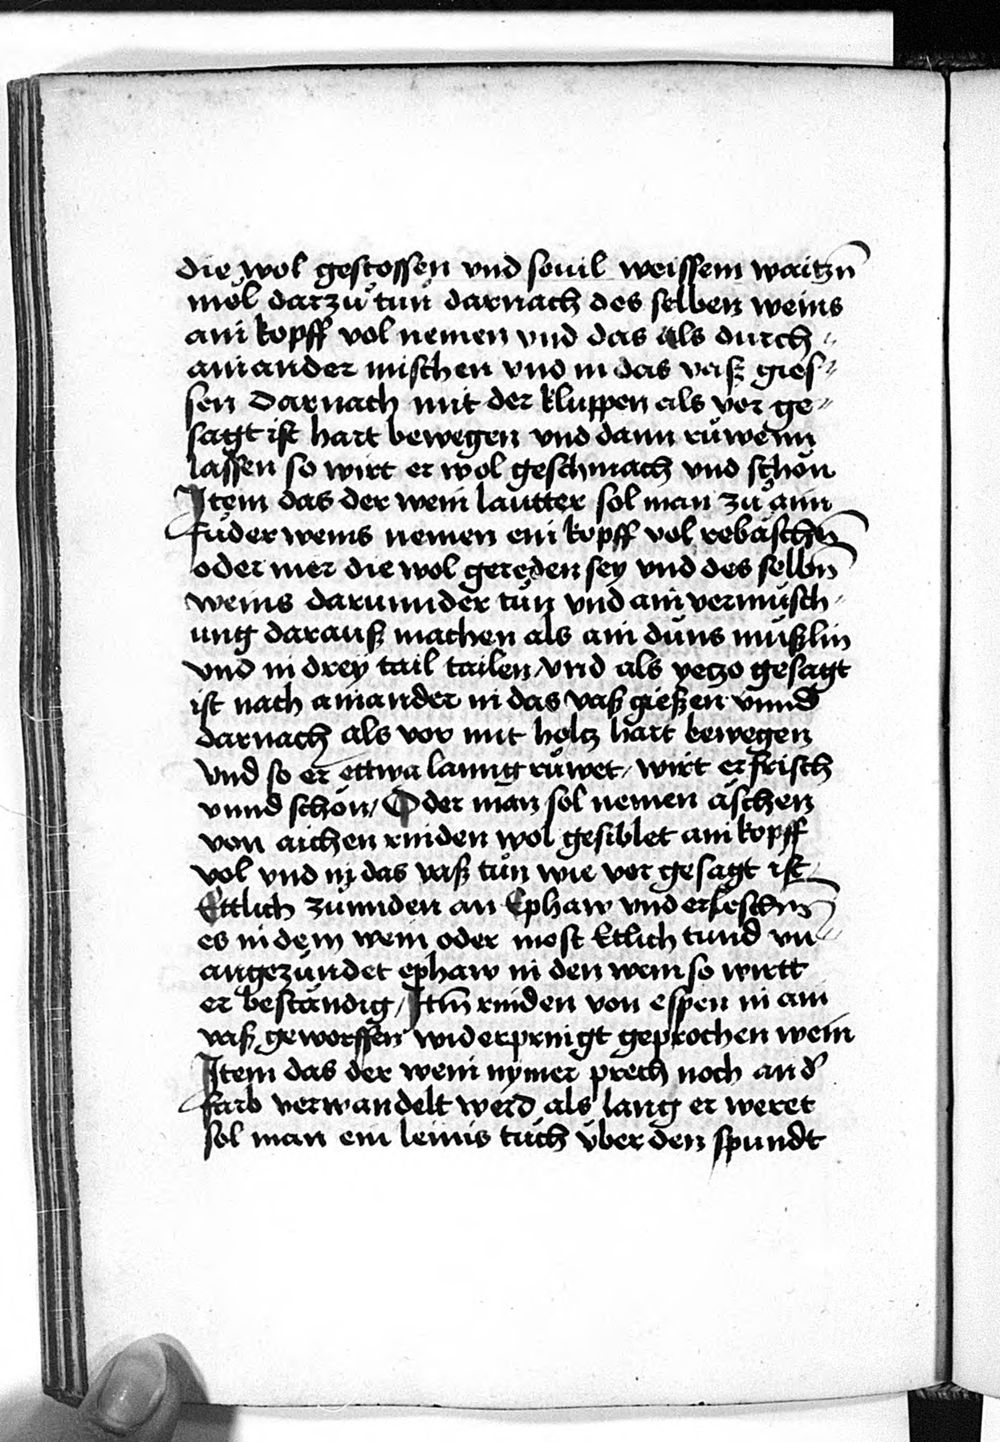 die wol gestossen vnd souil weissem waitzn̄
mel darzů tun darnach des selben weins
ain kopff vol nemen vnd das als durch
ainander mischen vnd in das vaß gies
sen Darnach mit der kluppen als vor ge
sagt ist hart bewegen vnd dann růwenn
lassen so wirt er wol geschmach vnd schön
Item das der wein lautter sol man zů ainn
fůder weins nemen ein kopff vol rebäschn̄
oder mer die wol gereden sey vnd des selbn̄
weins darunnder tůn vnd ain vermüsch
ung darauß machen als ain düns müßlin
vnd in drey tail tailen vnd als yetzo gesagt
ist nach ainander in das vaß gießen vnnd
darnach als vor mit holtz hart bewegen
vnd so er ettwa lanng růwet / wirt er frisch
vnnd schön / Oder man sol nemen äschen
von aichen rinden wol gesiblet ain kopff
vol vnd in das vaß tůn wie vor gesagt ist
Ettlich zünnden an Ephaw vnd erleschn̄
es in dem wein oder most Etlich tund vn
angezündet ephaw in den wein so wirtt
er beständig / Itm̄ rinden von espen in ain
vaß geworffen widerpringt geprochen wein
Item das der wein nymer prech noch and̓
farb verwandelt werd als lang er weret
sol man ein leinis tůch über den spundt